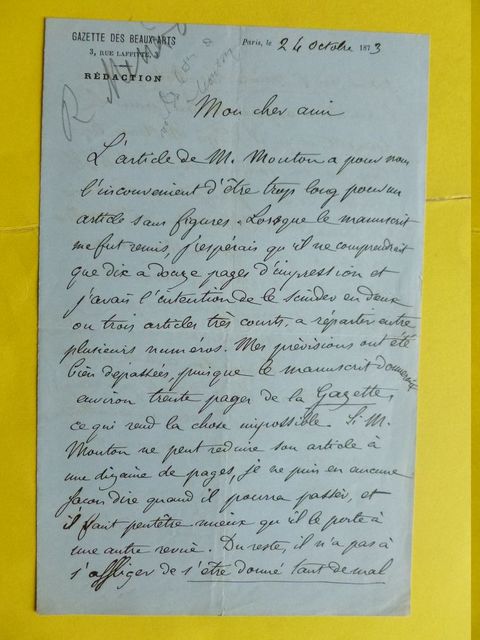 GAZETTE DES BEAUX-ARTS
3, RUE LAFFITTE, 3
RÉDACTION
Paris, le 24 Octobre 1873
R
Mon cher ami
L'article de M. Mouton a pour nous
l'inconvenient d'être trop long pour un
article sans figures. Lorsque le manuscrit
me fut remis, j'espérais qu'il ne comprendrait
que dix a douze pages d'impression et
j'avais l'intention de le scinder en deux
ou trois articles très courts, a répartir entre
plusieurs numéros. Mes prévisions ont été
bien dépassées, puisque le manuscrit donnerait
environ trente pages de la Gazette,
ce qui rend la chose impossible. Si M.
Mouton ne peut réduire son article à
une dizaine de pages, je ne puis en aucune
façon dire quand il pourra passer, et
il faut peutêtre mieux qu'il le porte à
une autre revue. Du reste, il n'a pas à
s'affliger de s'être donné tant de mal